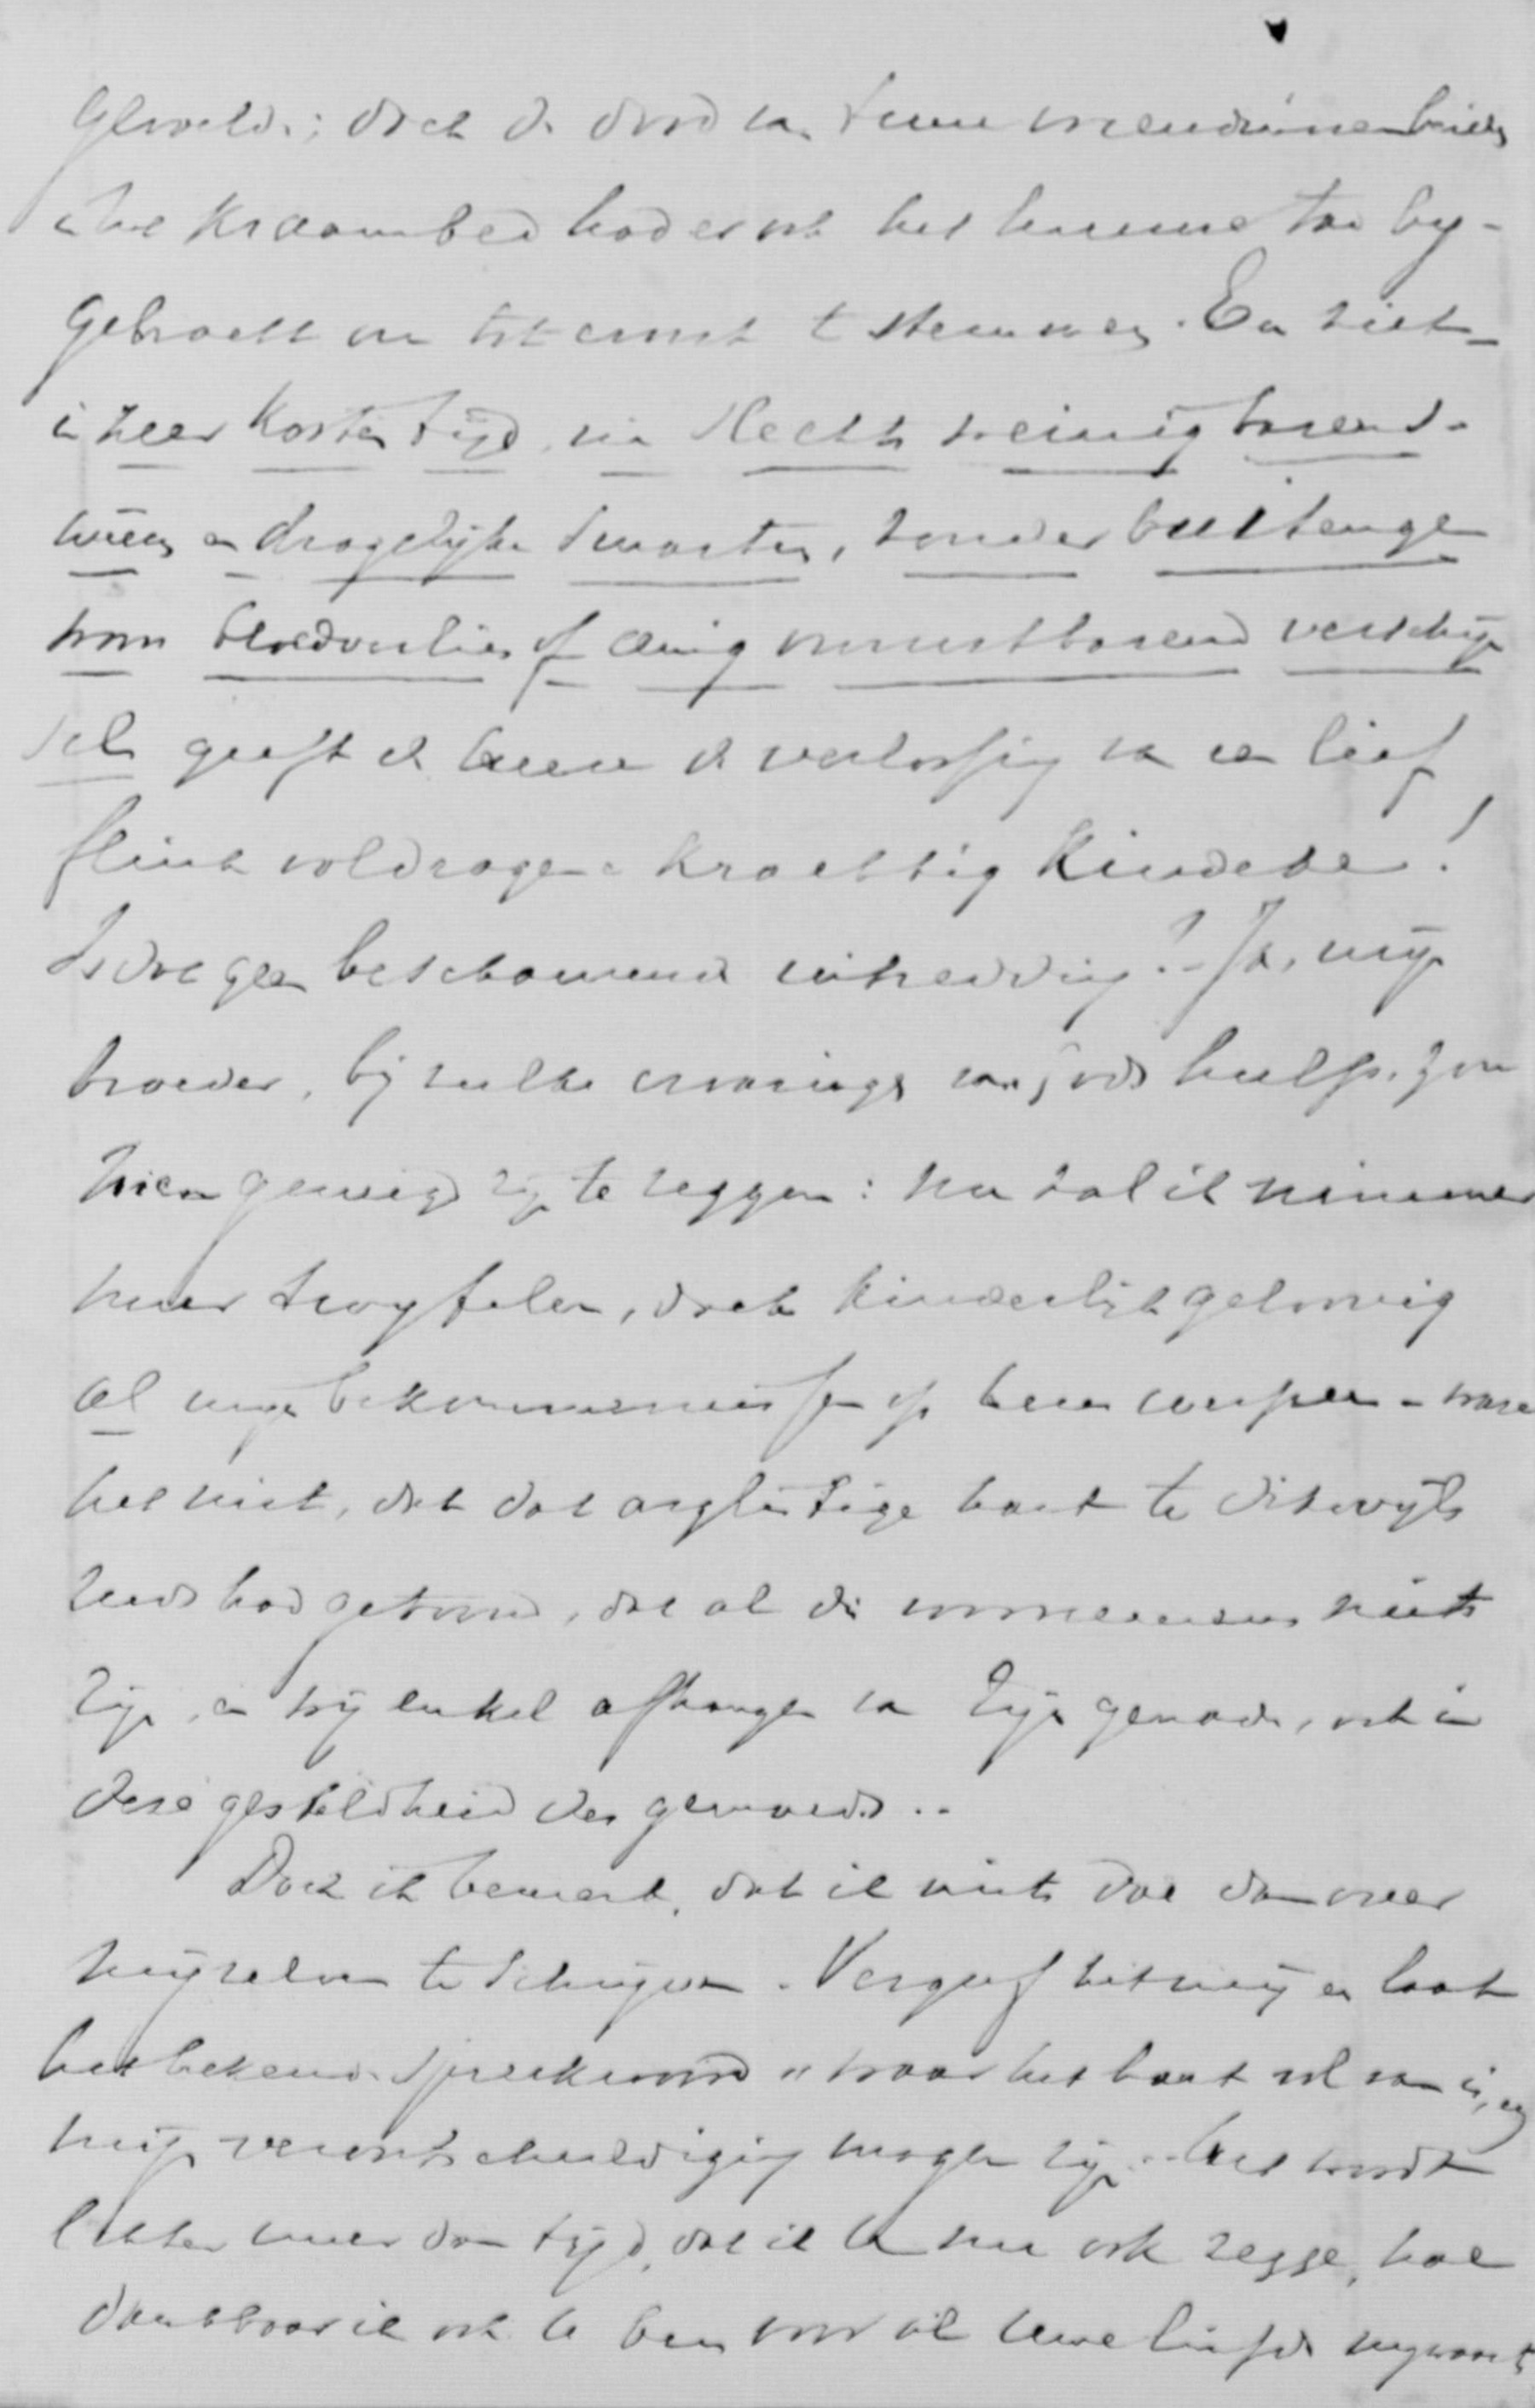 gevoelde; doch de dood van twee vriendinnen beide
in het Kraambed had er ook het hunne toe by-
gebracht om tot ernst te stemmen. En ziet -
in zeer korten tijd, na slechts weinig benaauwd-
 en dragelijke smarten, zonder buitenge
woon bloedverlies of eenig onrustbarend verschijn
sel geeft de Heere de verlossing van een lief
flink voldragen krachtig Kindeke!
Is dat geen beschamende uitredding? - Ja, mijn
broeder, bij zulke ervaringen van Gods hulpe, zou
men geneigd zijn te zeggen: nu zal ik nimmer
meer twyfelen, doch kinderlijk geloovig
al mijn bekommernissen op Hem werpen - ware
het niet, dat dat arglistige hart te dikwijls
reeds had getoond, dat al die voornemens niets
zijn, en wij enkel afhangen van Zijn genade, ook in
deze gesteldheid des gemoeds..
Doch ik bemerk, dat ik niets doe dan over
mijzelven te schrijven. Vergeef het mij en laat
het bekende spreekwoord "waar het hart vol van is, enz
mijn verontschuldiging mogen zijn. Het wordt
echter meer dan tijd, dat ik U nu ook zegge, hoe
dankbaar ik ook U ben voor al Uwe liefde mijwaarts